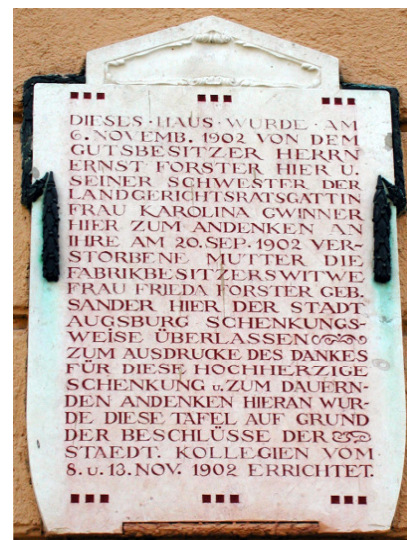 DIESES · HAUS · WURDE · AM
6. NOVEMB. 1902 VON DEM
GUTSBESITZER HERRN
ERNST FORSTER HIER U.
SEINER SCHWESTER DER
LANDGERICHTSRATSGATTIN
FRAU KAROLINA GWINNER
HIER ZUM ANDENKEN AN
IHRE AM 20. SEP. 1902 VER-
STORBENE MUTTER DIE
FABRIKBESITZERSWITWE
FRAU FRIEDA FORSTER GEB.
SANDER HIER DER STADT
AUGSBURG SCHENKUNGS-
WEISE ÜBERLASSEN
ZUM AUSDRUCKE DES DANKES
FÜR DIESE HOCHHERZIGE
SCHENKUNG u. ZUM DAUERN-
DEN ANDENKEN HIERAN WUR-
DE DIESE TAFEL AUF GRUND
DER BESCHLÜSSE DER
STAEDT. KOLLEGIEN VOM
8. u. 13. NOV. 1902 ERRICHTET.